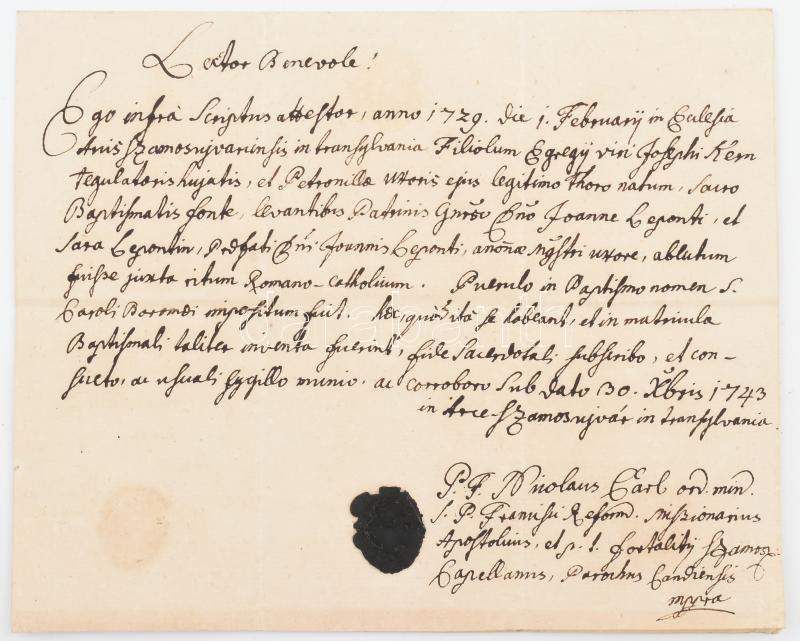 Lector Benevole!
Ego infrà Scriptus attestor, anno 1729. die 1. Februarij in Eclesia
Arcis Szamosujvariensis in transylvania Filiolum Egregij viri Josephi Kern
tegulatoris hujatis, et Petronillæ uxoris ejus legitimo thoro natum, Sacro
Baptismatis fonte, levantibus Patrinis Joanne Leponti, et
Sara Lepontin, Joannis Leponti, annonæ Mgstri uxore, ablutum
fuisse juxta ritum Romano-catholicum. Puerulo in Baptismo nomen S.
Caroli Boromei impositum fuit. ita se habeant, et in matricula
Baptismali taliter inventa fuerint, fide Sacerdotali subscribo, et con-
sueto, ac usuali sygillo munio. ac corroboro Sub dato 30. Xbris 1743
in Arce Szamosujvár in transylvania.
P. F. Nicolaus Carl ord. min.
S. P. Francisci Reform. Missionarius
Apostolicus, et p. t. fortalitij Szamos
Capellanus, Parochus Candiensis
mppra
darabanth